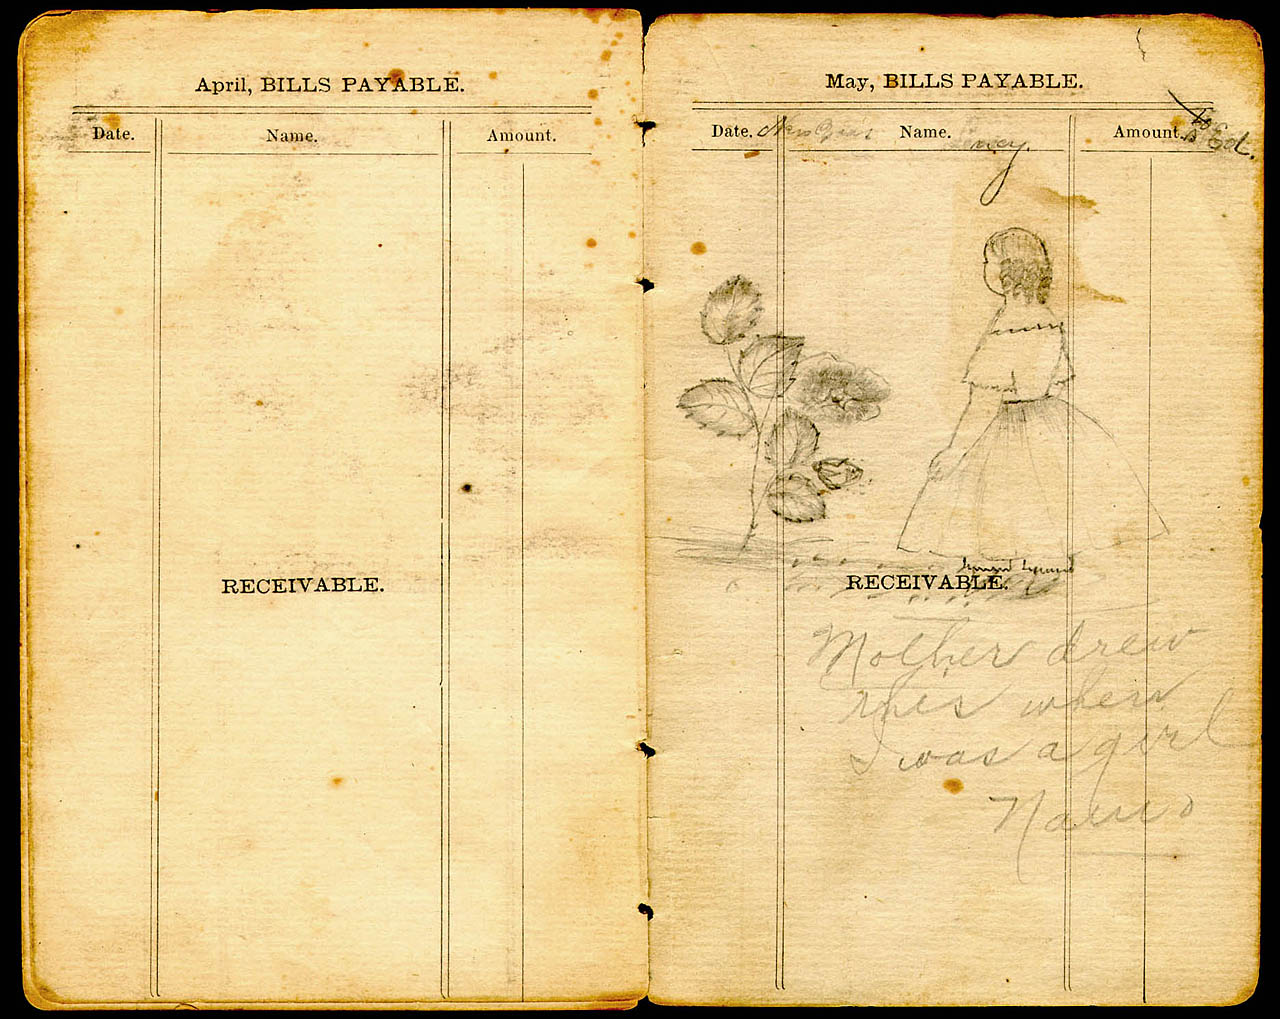 April, BILLS PAYABLE.
Date. Name. Amount.
RECEIVABLE.
May, BILLS PAYABLE.
Date. Name. Amount.
RECEIVABLE.
Mother drew
this when
I was a girl